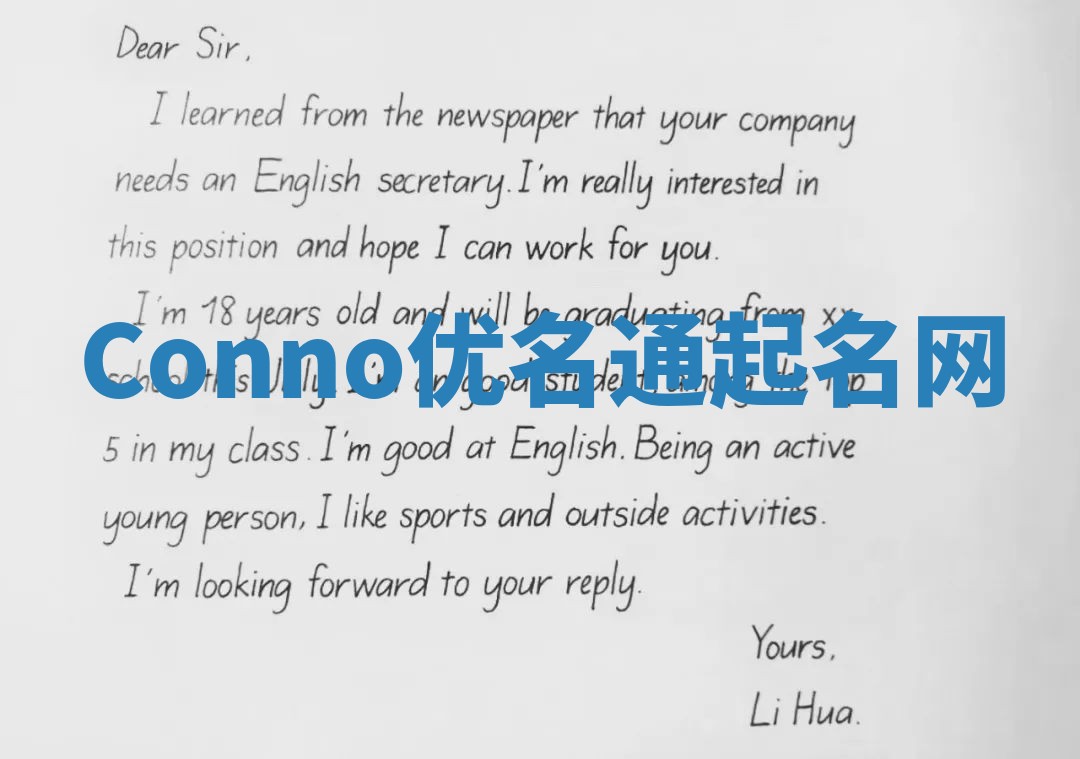 Dear Sir,
I learned from the newspaper that your company
needs an English secretary. I'm really interested in
this position and hope I can work for you.
I'm 18 years old and will be graduating from xx
Conno优名通起名网
school this July. I'm an good student, among the top
5 in my class. I'm good at English. Being an active
young person, I like sports and outside activities.
I'm looking forward to your reply.
Yours,
Li Hua.